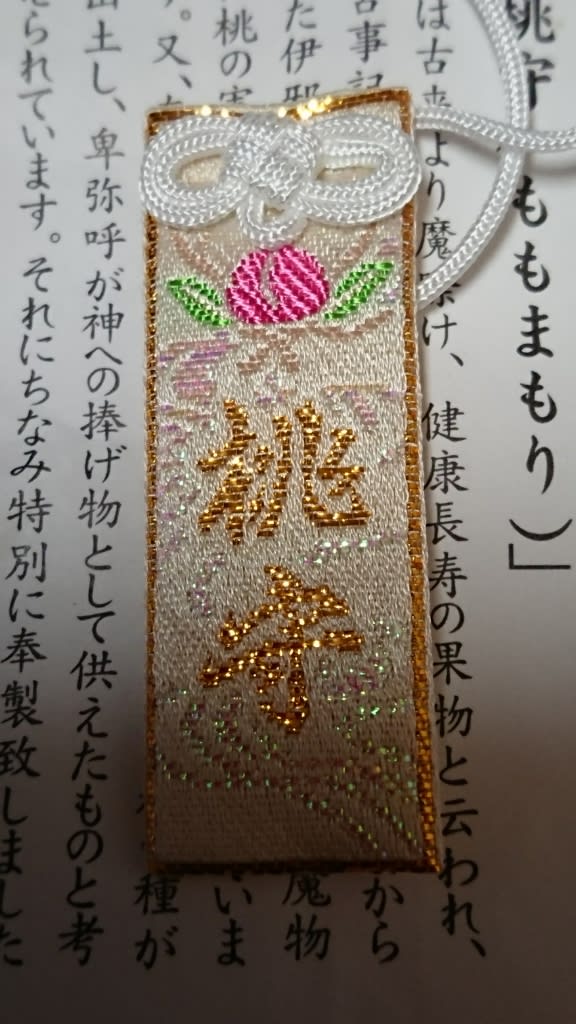 桃守
桃守 ももまもり)」
は古来より魔除け、健康長寿の果物と云われ、
古事記 から
た伊邪 魔物
桃の実 いま
。又、 種が
出土し、卑弥呼が神への捧げ物として供えたものと考
えられています。それにちなみ特別に奉製致しました